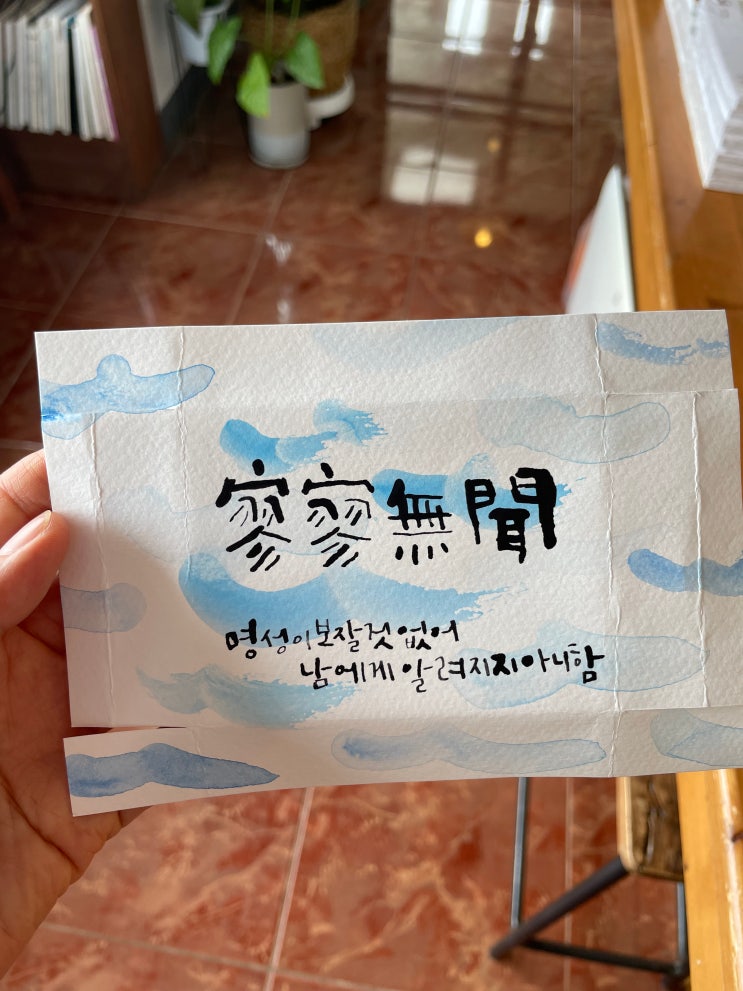 寥寥無聞
명성이 보잘것 없어
남에게 알려지지 아니함